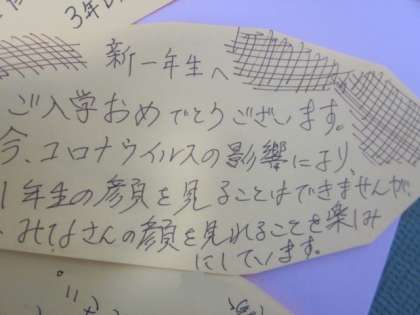 3年
新一年生へ
ご入学おめでとうございます。
今、コロナウイルスの影響により、
1年生の顔を見ることはできませんが
みなさんの顔を見れることを楽しみ
にしています。